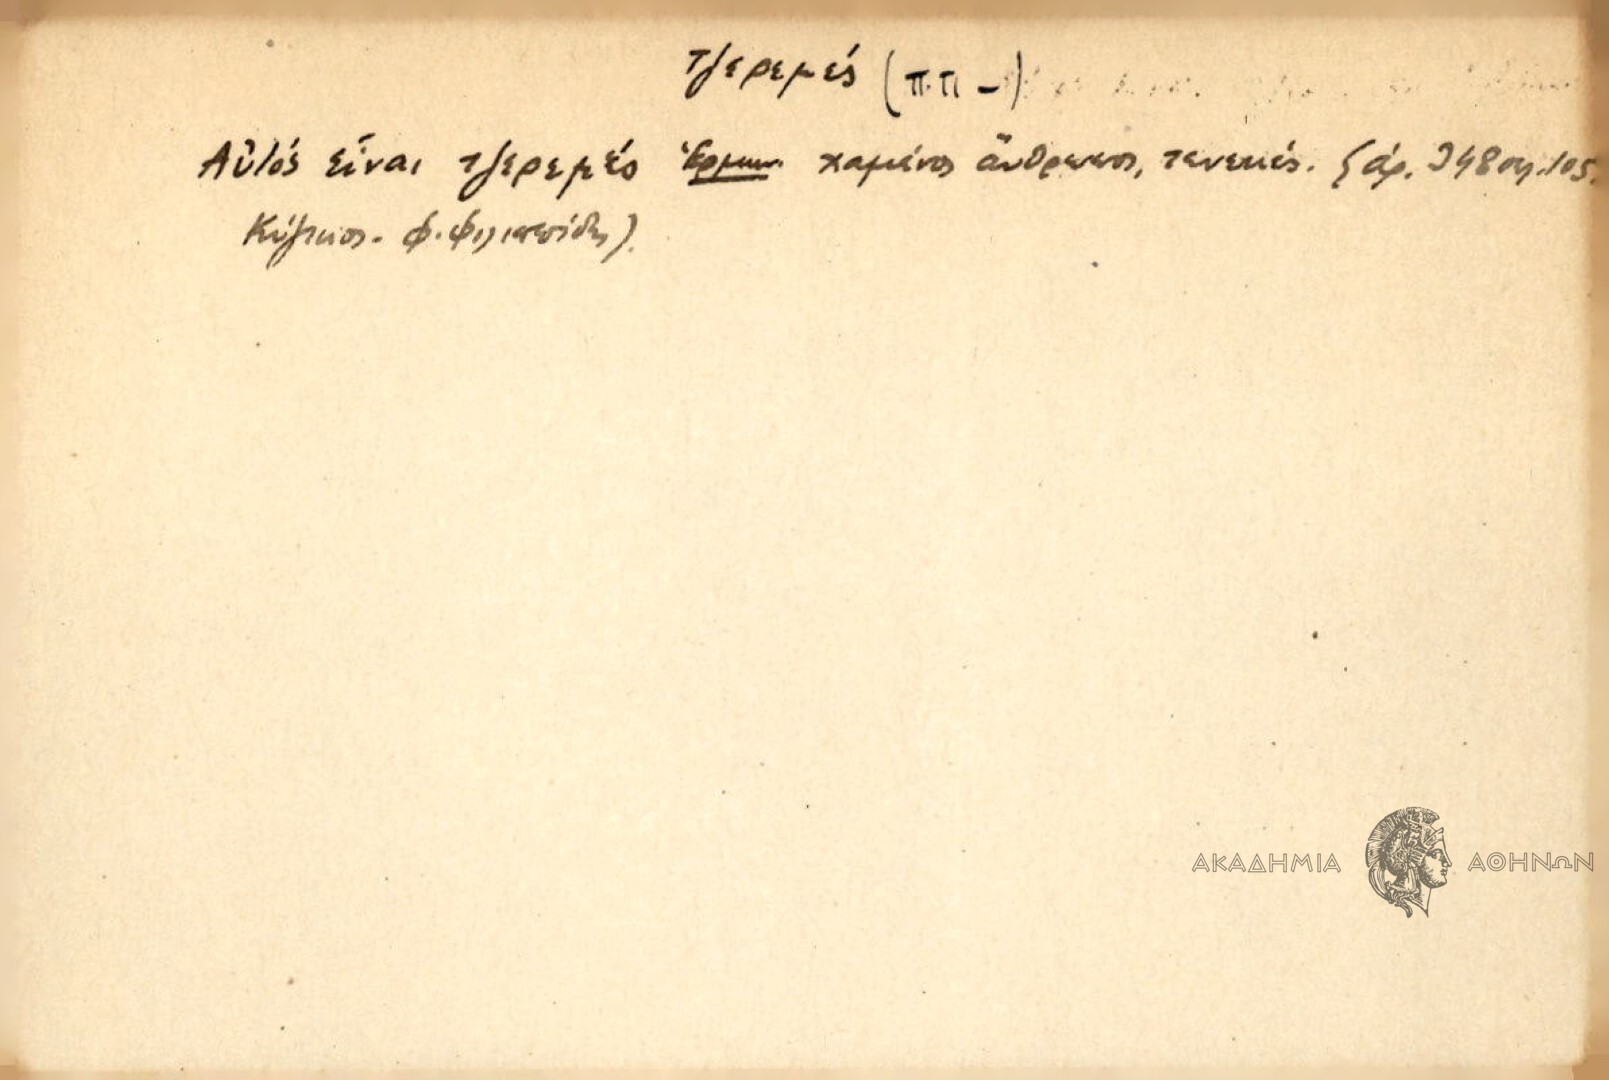 τζερεμές (π.π -)
Αὐτός εἶναι τζερεμές Ἑρμην. χαμένος ἄνθρωπος, τενεκές. (ἀρ. 948 σελ. 105.
Κύζικος. Φ. Φιλιππίδης)
ΑΚΑΔΗΜΙΑ ΑΘΗΝΩΝ